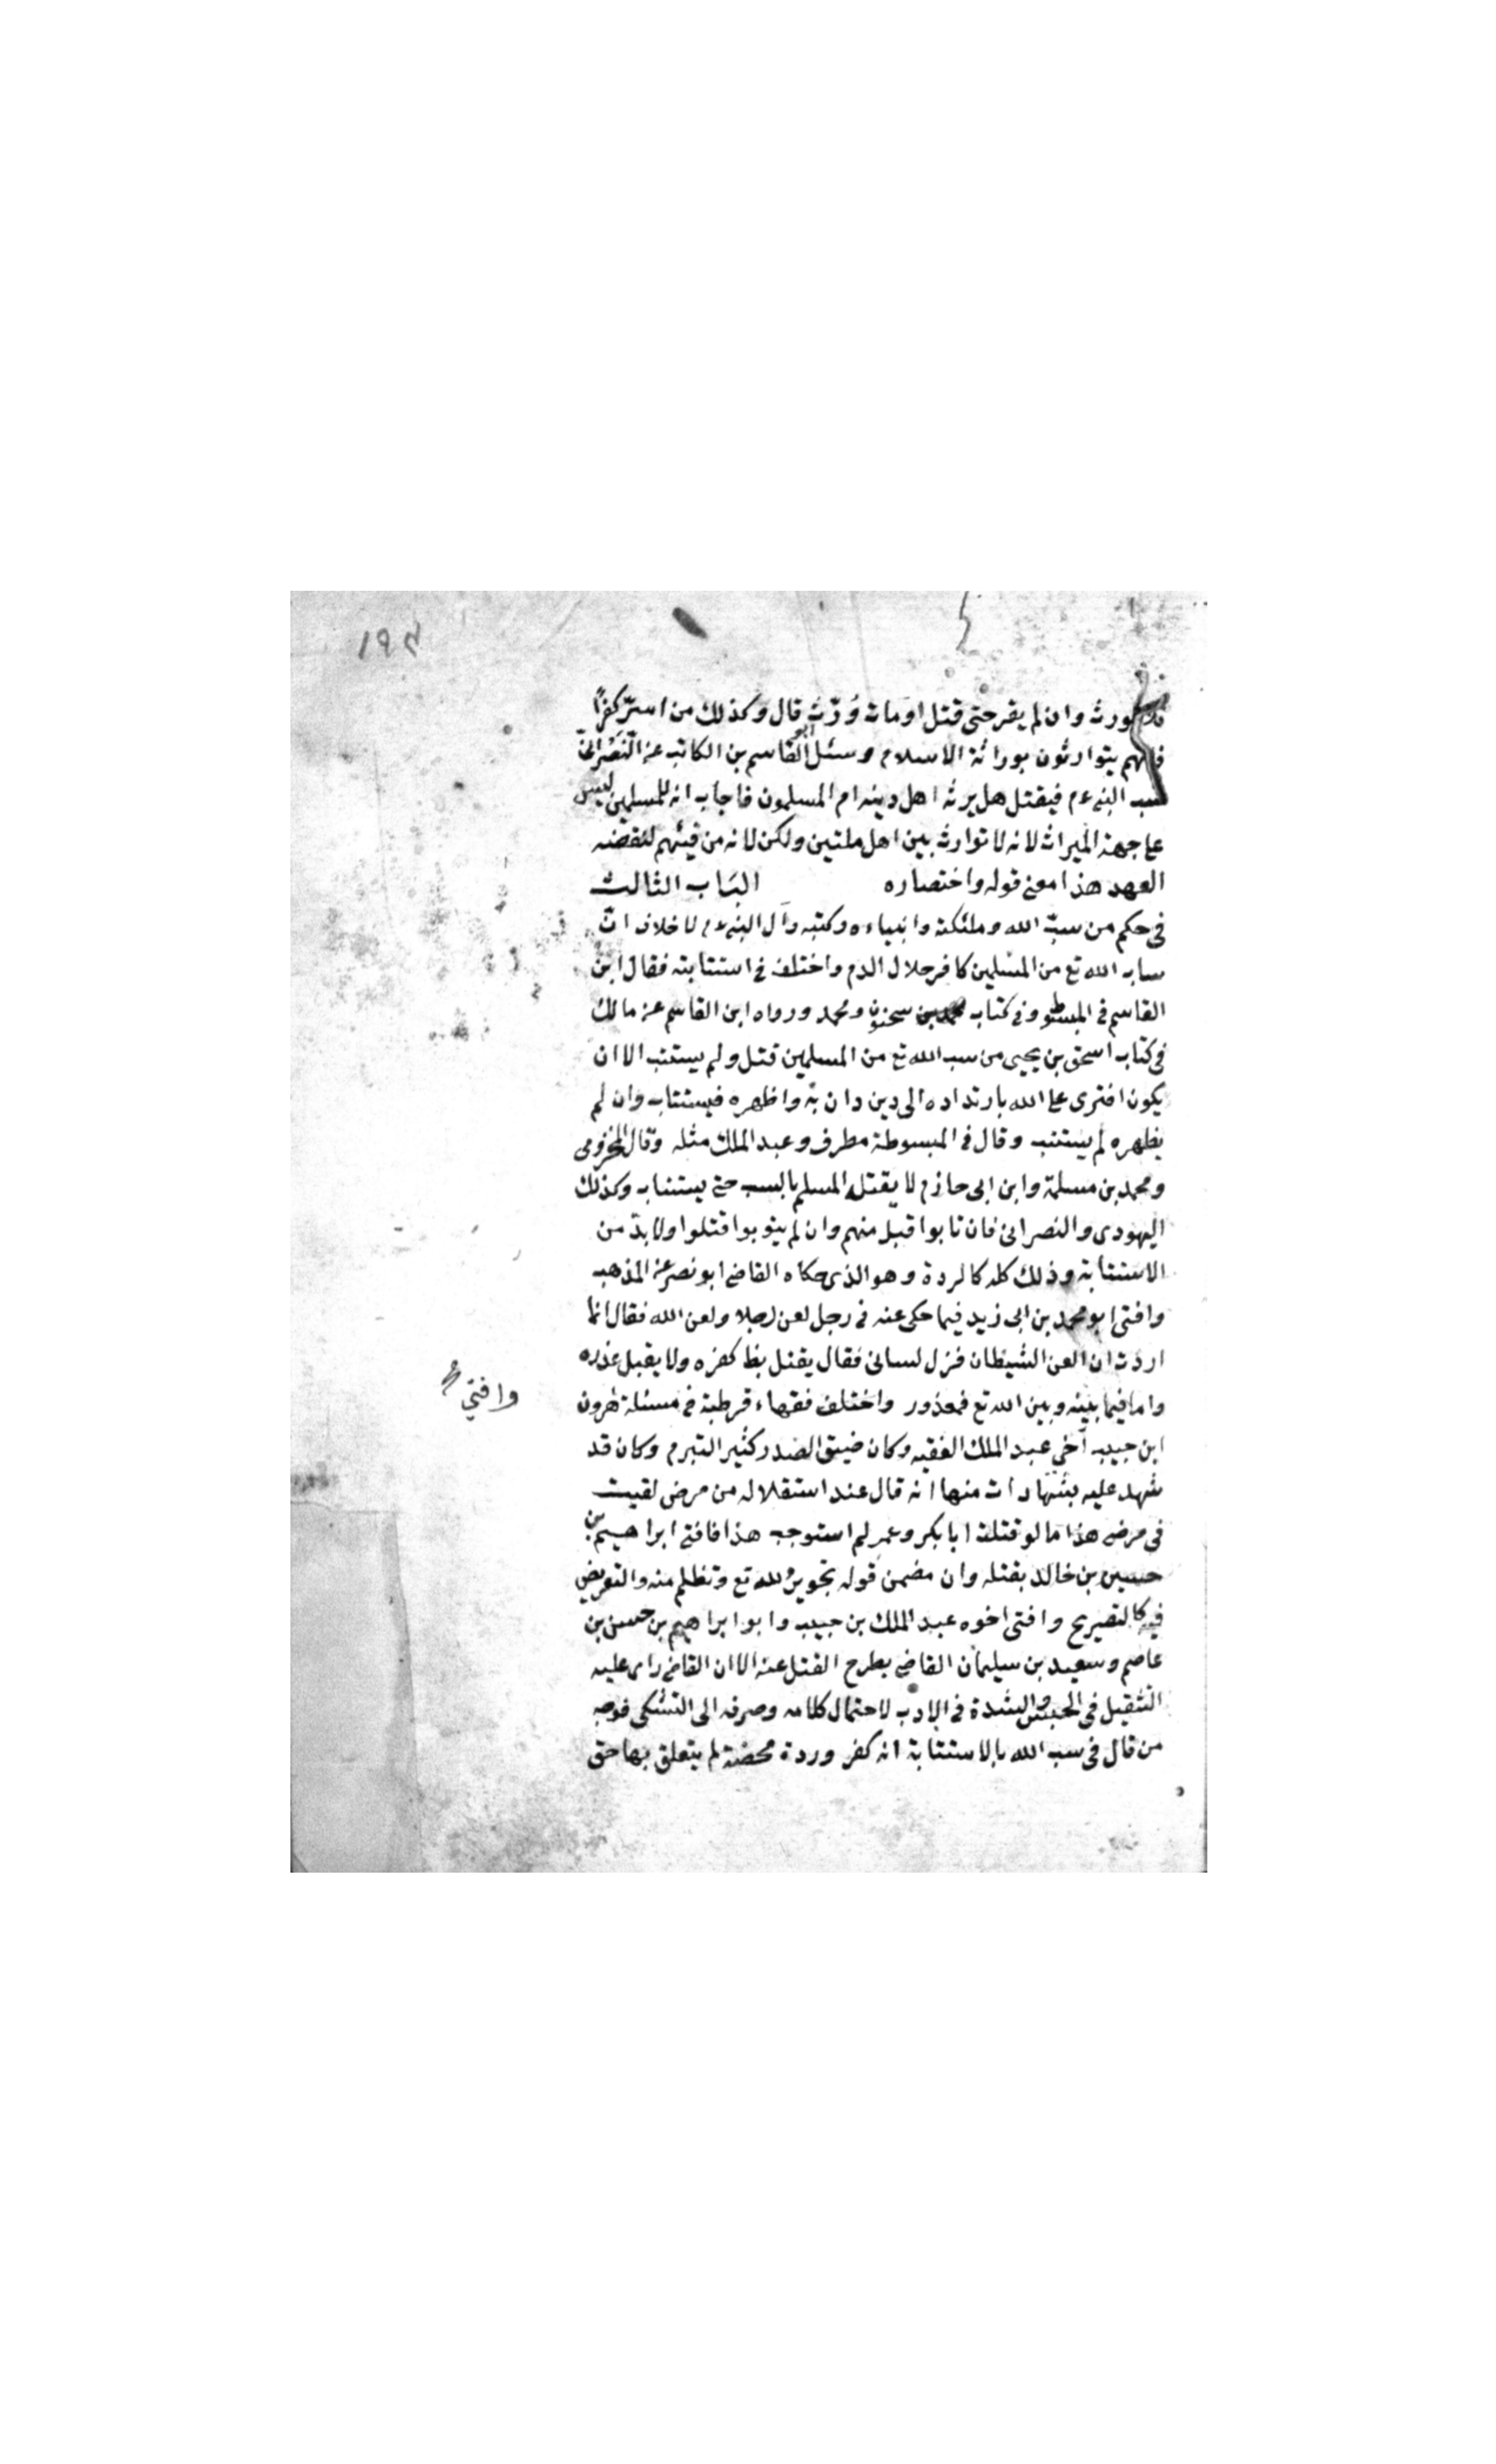 ١٩٢
فلا يورث وان لم يقر حتى قتل او مات وُرّث قال وكذلك من استرّ كفرًا
فانهم يتوارثون بوراثة الاسلام وسئل ابو القاسم بن الكاتب عن النصرانى
يسب النبى عم فيقتل هل يرثه اهل دينه ام المسلمون فاجاب انه للمسلمين ليس
على جهة الميراث لانه لا توارث بين اهل ملتين ولكن لانه من فيئهم لنقضه
العهد هذا معنى قوله واختصاره الباب الثالث
فى حكم من سبّ الله وملئكته وانبياءه وكتبه وآل النبى عم لا خلاف انّ
ساب الله تع من المسلمين كافر حلال الدم واختلف فى استتابته فقال ابن
القاسم فى المبسوط وفى كتاب ابن سحنون ومحمد ورواه ابن القاسم عن مالك
فى كتاب اسحق بن يحيى من سب الله تع من المسلمين قتل ولم يستتب الا ان
يكون افترى على الله بارتداده الى دين دان به واظهره فيستتاب وان لم
يظهره لم يستتب وقال فى المبسوطة مطرف وعبد الملك مثله وقال المخزومى
ومحمد بن مسلمة وابن ابى حازم لا يقتل المسلم بالسب حتى يستتاب وكذلك
اليهودى والنصرانى فان تابوا قبل منهم وان لم يتوبوا قتلوا ولا بدّ من
الاستتابة وذلك كله كالردة وهو الذى حكاه القاضى ابو نصر عن المذهب
وافتى ابو محمد بن ابى زيد فيما حكى عنه فى رجل لعن رجلا ولعن الله فقال انما
اردت ان العن الشيطان فزل لسانى فقال يقتل بظاهر كفره ولا يقبل عذره
واما فيما بينه وبين الله تع فمعذور واختلف فقهاء قرطبة فى مسئلة هرون
ابن حبيب أخي عبد الملك الفقيه وكان ضيق الصدر كثير التبرم وكان قد
شهد عليه بشهادات منها انه قال عند استقلاله من مرض لقيت
فى مرضى هذا ما لو قتلت ابا بكر وعمر لم استوجب هذا فافتى ابراهيم بن
حسين بن خالد بقتله وان مضمن قوله تجوير لله تع وتظلم منه والتعريض
فيه كالتصريح وافتى اخوه عبد الملك بن حبيب وابو ابراهيم بن حسن بن
عاصم وسعيد بن سليمان القاضى بطرح القتل عنه الا ان القاضى راى عليه
التثقيل فى الحبس والشدة فى الادب لاحتمال كلامه وصرفه الى التشكى فوجه
من قال فى سب الله بالاستتابة انه كفر وردة محضة لم يتعلق بها حق
وافتي